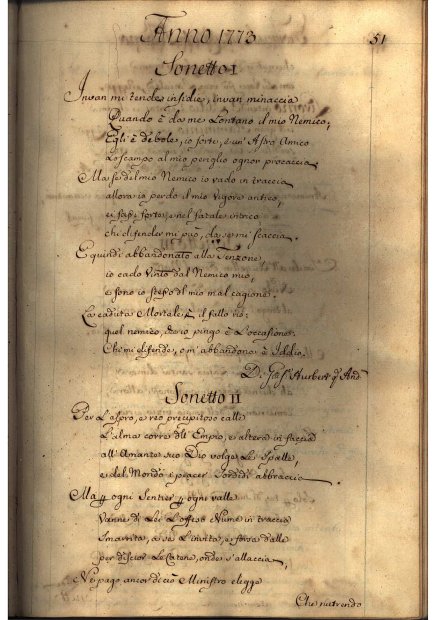 Anno 1773
51
Sonetto I
Invan mi tende insidie, invan minaccia
Quando è da me Lontano il mio Nemico;
Egli è debole, io forte, e un' Astro Amico
Lo scampo al mio periglio ognor procaccia.
Ma se del mio Nemico io vado in traccia
allora io perdo il mio vigore antico,
ei si fà forte, e nel fatale intrico
chi difender mi può, da se mi scaccia.
E quindi abbandonato alla Tenzone,
io cado Vinto dal Nemico mio,
e sono io stesso del mio mal cagione.
La caduta Mortale è il fallo rio:
quel nemico, ch'io pingo è L'occasione.
Chi mi difende, e m' abbandona è Iddio.
D:
Sonetto II
Per L'aspro, e reo precipitoso calle
L'alma corre dell' Empio, e altera in faccia
all' Amante suo Dio volge Le Spalle,
e del Mondo i piacer sordidi abbraccia.
Ma ogni Sentier ogni valle
Vanne di Lei L'offeso Nume in traccia
Smarrita, a se L'invita, e
per discior Le Catene, onde s'allaccia,
Nè pago ancor di ciò Ministro elegge
Che nutrendo